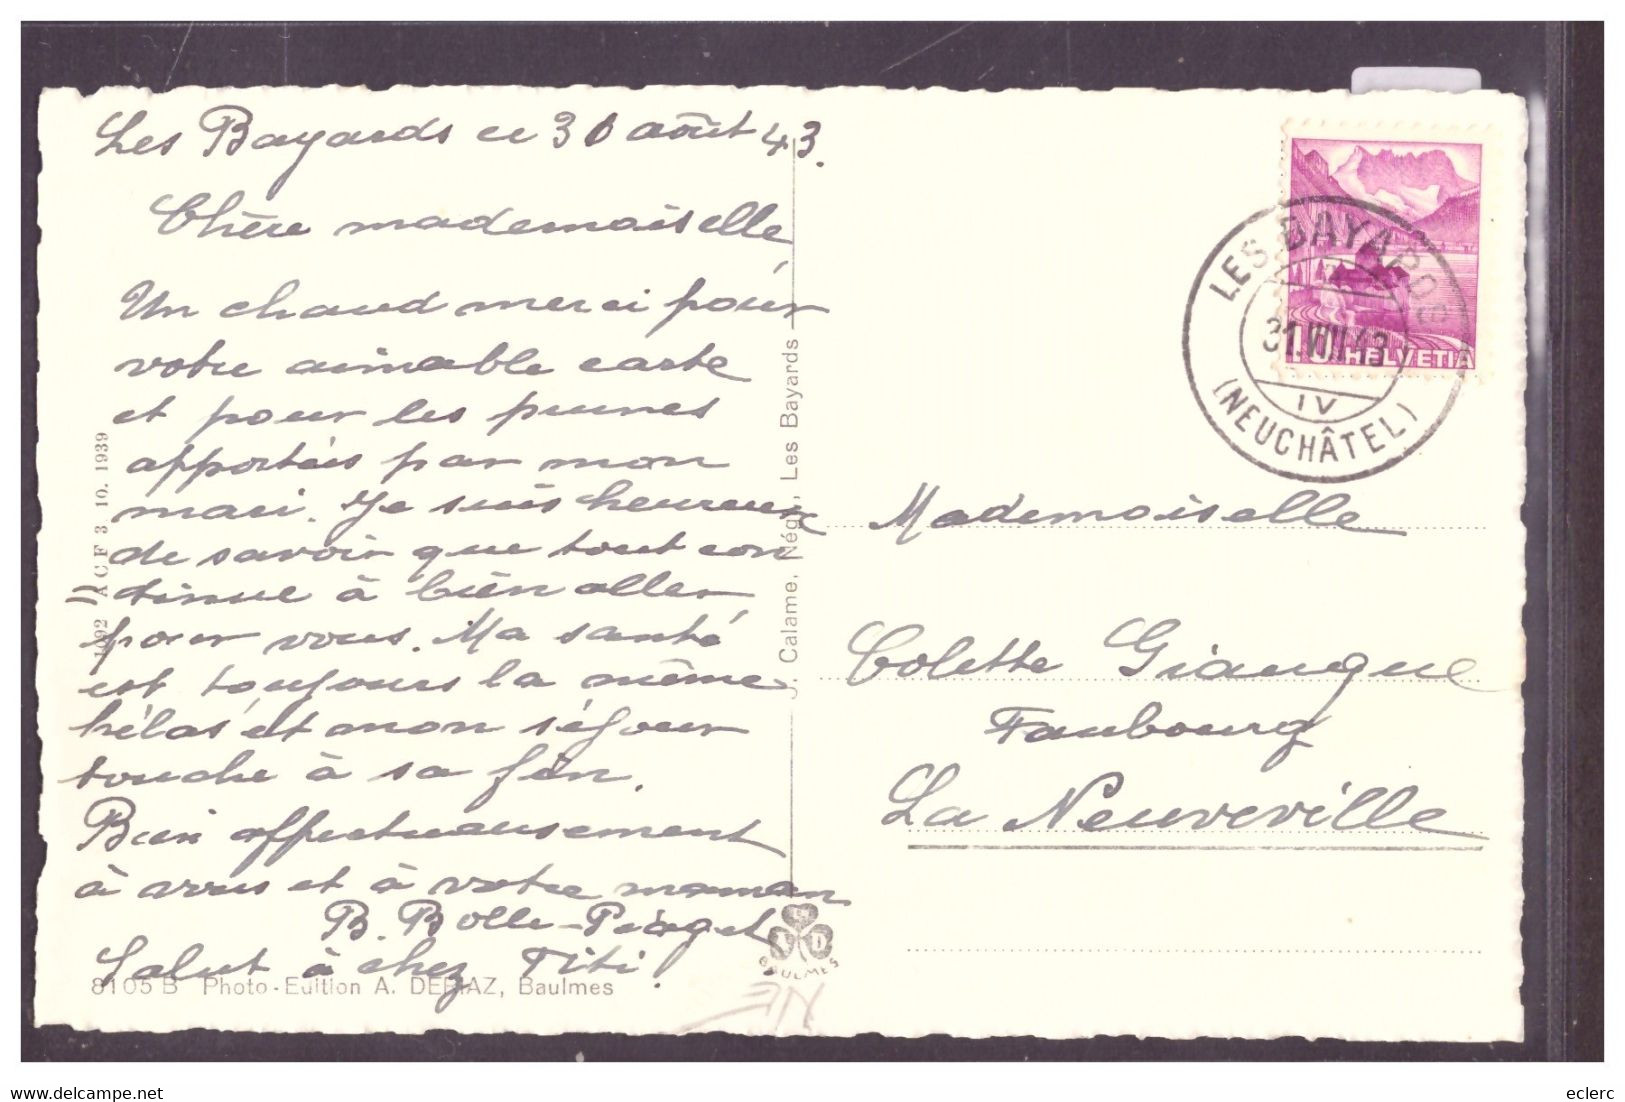 Les Bayards ce 30 août 43.
Chère mademoiselle
Un chaud merci pour
votre aimable carte
et pour les prunes
apportées par mon
mari. Je suis heureux
de savoir que tout con
tinue à bien aller
pour vous. Ma santé
est toujours la même
hélas et mon séjour
touche à sa fin.
Bien affectueusement
à vous et à votre maman
B. Bolle-Piaget
Salut à chez Titi.
8105 B Photo-Edition A. DERIAZ, Baulmes
1092 A C F 3. 10. 1939
J. Calame, Nég., Les Bayards
BAULMES
LES BAYARDS
31.VIII.43
IV
(NEUCHÂTEL)
10 HELVETIA
Mademoiselle
Colette Giauque
Faubourg
La Neuveville
www.delcampe.net
eclerc